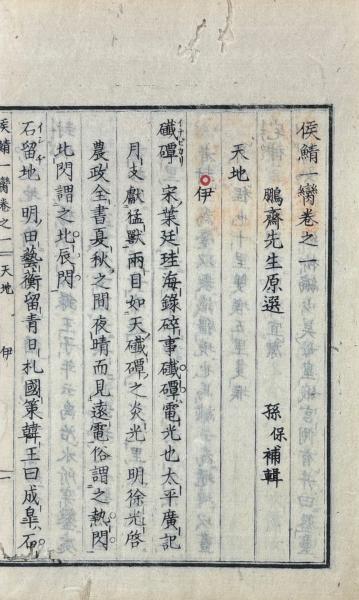 侯鯖一臠卷之一
鵬齋先生原選 孫保補輯
天地
伊
イナビカリ
礮磹 宋葉廷珪海錄碎事礮磹電光也太平廣記
月支獻猛獸兩目如天礮磹之炎光 明徐光啓
農政全書夏秋之間夜晴而見遠電俗謂之熱閃
北閃謂之北辰閃
イシヂ
石留地 明田藝衡留青日札國策韓王曰成皐石
侯鯖一臠卷之一 天地 伊 一